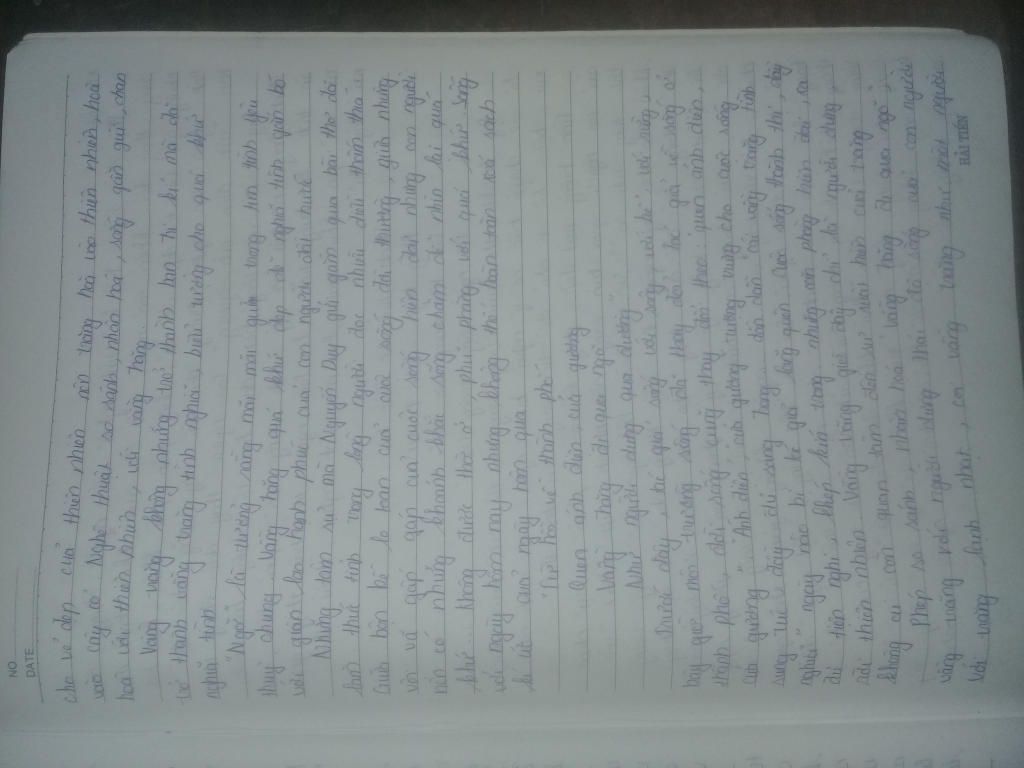 NO.
DATE
cho vẻ đẹp của thiên nhiên nên vầng trăng hoà vào thiên nhiên, hoà
vào cây cỏ. Nghệ thuật so sánh, nhân hoá, sống gần gũi, chan
hoà với thiên nhiên, với vầng trăng.
Vầng trăng không những trở thành bạn tri kỉ mà đã
trở thành vầng trăng tình nghĩa, biểu tượng cho quá khứ
nghĩa tình.
"Ngỡ" là tưởng rằng mãi mãi quên trong tim tình yêu
thuỷ chung. Vầng trăng quá khứ đẹp đẽ nghĩa tình gắn bó
với gian lao hạnh phúc của con người đất nước.
Những tâm sự mà Nguyễn Duy gửi gắm qua bài thơ đã
làm thức tỉnh trong lòng người đọc nhiều điều thấm thía.
Cuộc bộn bề lo toan của cuộc sống đời thường, giữa những
vồn vã gấp gáp của cuộc sống hiện đại nhưng con người
nên có những khoảnh khắc sống chậm để nhìn lại quá
khứ. Không được thờ ơ phủ phàng với quá khứ. Sống
với ngày hôm nay nhưng không thể hoàn toàn xoá sạch
kí ức của ngày hôm qua.
"Từ hồi về thành phố
Quen ánh điện, cửa gương
Vầng trăng đi qua ngõ
Như người dưng qua đường
Trước đây, tác giả sống với sông, với bể, với rừng,
bây giờ môi trường sống đã thay đổi tác giả về sống ở
thành phố, đời sống cũng thay đổi theo quen ánh điện,
cửa gương. Ánh điện cửa gương tượng trưng cho cuộc sống
sung túc đầy đủ sang trọng. dần dần cái vầng trăng tình
nghĩa ngày nào bị tác giả lãng quên. Cuộc sống thành thị, đầy
đủ tiện nghi, khép kín trong những căn phòng hiện đại, xa
rời thiên nhiên. Vầng trăng giờ đây chỉ là người dưng,
không ai còn quan tâm đến sự xuất hiện của trăng.
Phép so sánh, nhân hoá vầng trăng đi qua ngõ,
vầng trăng với người dưng thái độ sống của con người
với trăng lạnh nhạt, coi vầng trăng như một người
HẢI TIẾN